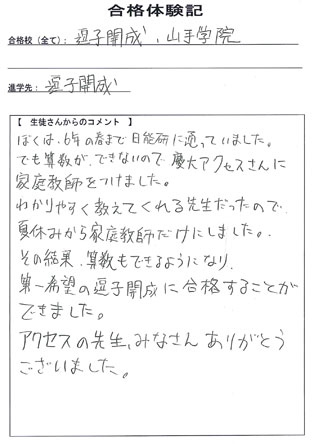 合格体験記
合格校(全て): 逗子開成、山手学院
進学先: 逗子開成
【 生徒さんからのコメント 】
ぼくは、6年の春まで日能研に通っていました。
でも算数が、できないので慶大アクセスさんに
家庭教師をつけました。
わかりやすく教えてくれる先生だったので、
夏休みから家庭教師だけにしました。
その結果、算数もできるようになり、
第一希望の逗子開成に合格することが
できました。
アクセスの先生、みなさんありがとう
ございました。